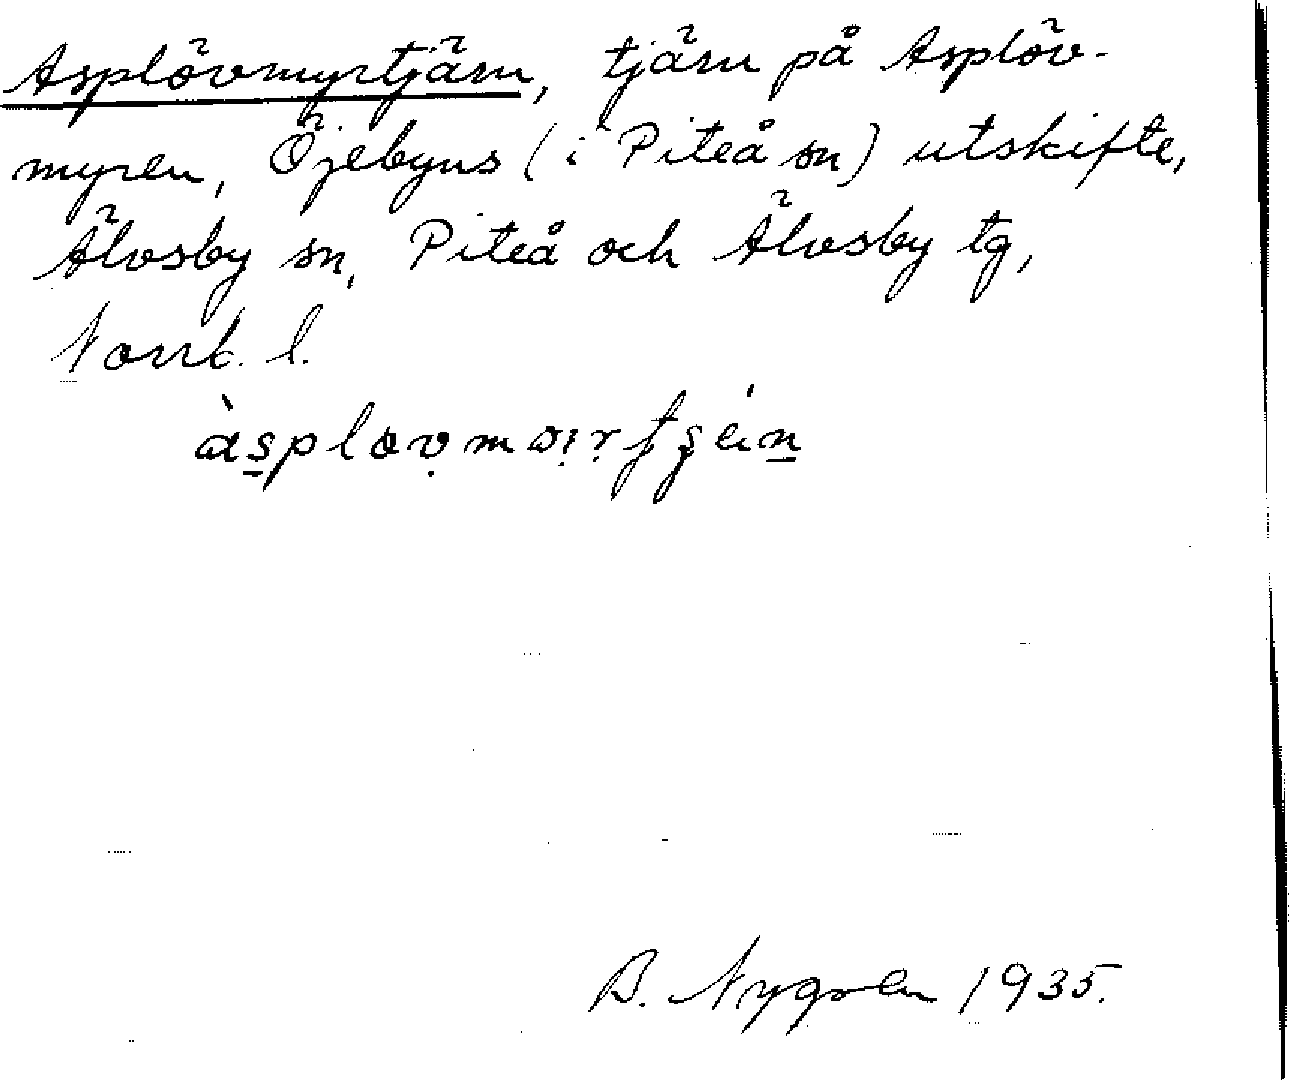 Asplövmyrtjärn, tjärn på Asplöv-
myren, Öjebyns (i Piteå sn) utskifte,
Älvsby sn, Piteå och Älvsby tg,
Norrb. l.
B. Nygren 1935.